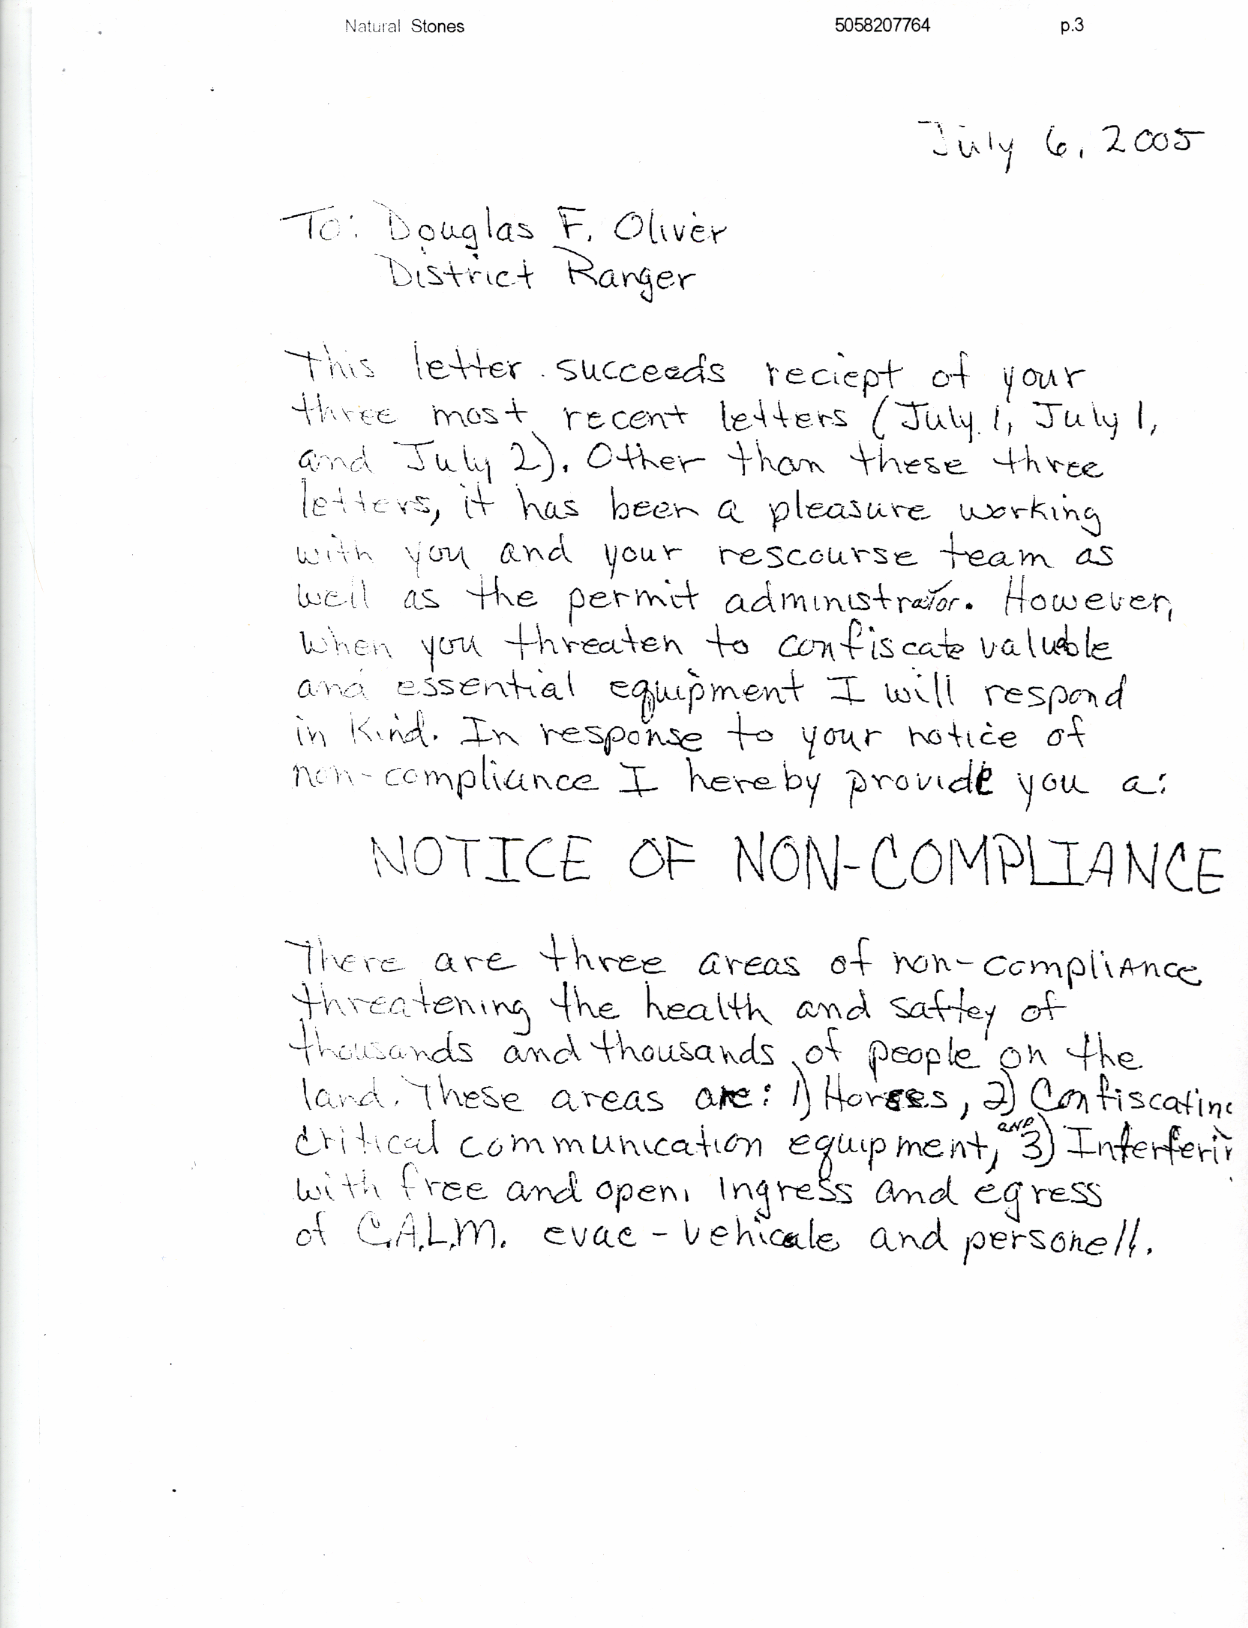 Natural Stones 5058207764 p.3
July 6, 2005
To: Douglas F. Oliver
District Ranger
This letter succeeds reciept of your
three most recent letters (July 1, July 1,
and July 2). Other than these three
letters, it has been a pleasure working
with you and your rescourse team as
well as the permit administrator. However,
when you threaten to confiscate valuable
and essential equipment I will respond
in kind. In response to your notice of
non-compliance I hereby provide you a:
NOTICE OF NON-COMPLIANCE
There are three areas of non-compliance
threatening the health and saftey of
thousands and thousands of people on the
land. These areas are: 1) Horses, 2) Confiscating
critical communication equipment, AND 3) Interferin
with free and open, ingress and egress
of C.A.L.M. evac-vehicale and personell.